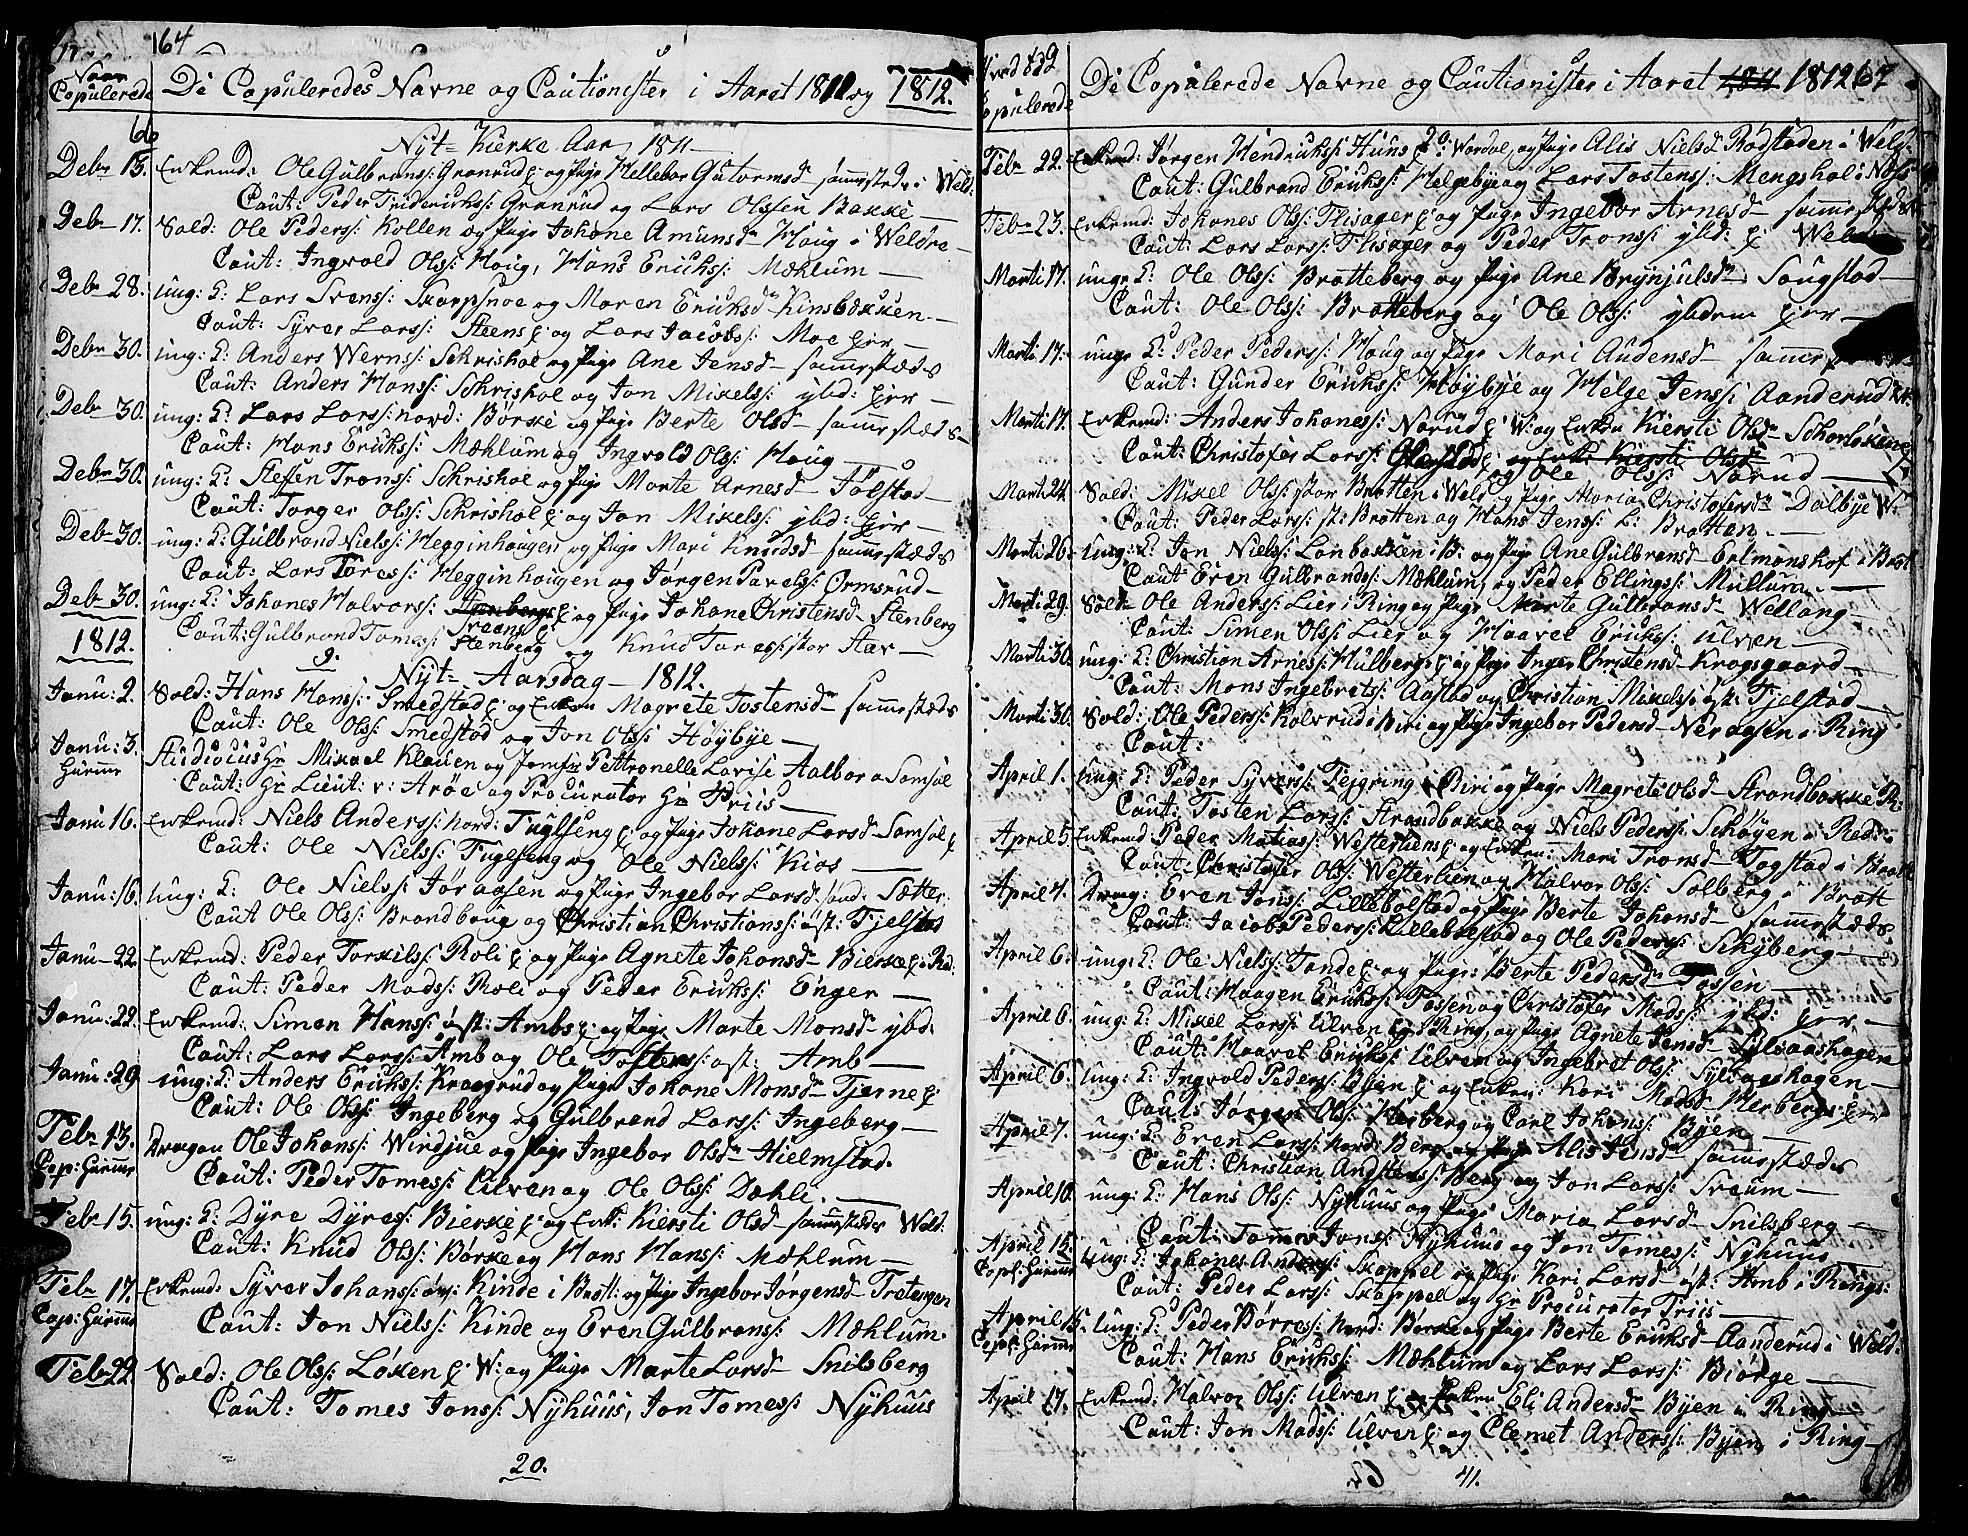 164
Naar Copulerede
De Copuleredes Navne og Cautionister i Aaret 1811 og 1812.
66
Nyt-Kierke Aar 1811
Debr 13. Enkemd: Ole Gulbranss: Granrud E: og Pige Hellebor Gutormsd– sammestæds i Weld:
Caut: Peder Friderichss: Granrud og Lars Olssen Bakke –
Debr 17. Sold: Ole Pederss: Kollen og Pige Johane Amunsd– Houg i Weldre –
Caut: Ingvold Olss: Houg, Hans Erichss: Mæhlum –
Debr 28. ung: K: Lars Svenss: Skappsnoe og Maren Eriksd– Kinsbækken –
Caut: Syver Larss: Steens E: og Lars Jacobss: Moe Eier –
Debr 30. ung: K: Anders Wernss: Schrishol og Pige Ane Jensd– sammestæds
Caut: Anders Hanss: Schrishol og Jon Mikelss: ybd: Eier –
Debr 30. ung: K: Lars Larss: nord: Børke og Pige Berte Olsd– sammestæds –
Caut: Hans Erikss: Mæhlum og Ingvold Olss: Houg –
Debr 30. ung: K: Steffen Tronss: Schrishol og Pige Marte Arnesd– Jølstad –
Caut: Torger Olss: Schrishol E: og Jon Mikelss: ybd: Eier –
Debr 30. ung: K: Gulbrand Nielss: Hegginhougen og Pige Mari Knudsd– sammestæds
Caut: Lars Toress: Hegginhougen og Jørgen Pavelss: Ormsrud –
Debr 30. ung: K: Johanes Halvorss: Steens E: og Pige Johane Christensd– Stenberg
Caut: Gulbrand Tomess: Stenberg og Knud Toress: stor Aar –
1812.
9.
Nyt-Aarsdag – 1812.
Janu: 2. Sold: Hans Hanss: Smedstad E: og Enken Magrete Tostensd– sammestæds
Caut: Ole Olss: Smedstad og Jon Olss: Høybye –
Janu: 3. Studiosus Hr Mikael Klauen og Jomfru Pettronelle Lovise Aalbor a Somsøl
Caut: Hr Lieut: v: Arøe og Procurator Hr Friis –
Janu 16. Enkemd: Niels Anderss: nord: Fuglseng E: og Pige Johane Larsd– Somsøl E
Caut: Ole Nielss: Fuglseng og Ole Nielss: Kios –
Janu: 16. ung: K: Ole Nielss: Jøraasen og Pige Ingebor Larsd: sønd: Sætter
Caut Ole Olss: Brandboug og Christian Christianss: øst: Fjelstad
Janu – 22. Enkemd: Peder Torkilss: Roli E: og Pige Agnete Johansd– Bierke E: i Red:
Caut: Peder Madss: Roli og Peder Erikss: Enger –
Janu: 22. Enkemd: Simen Hanss: øst: Ambs E: og Pige Marte Monsd– ybd:
Caut: Lars Larss: Amb og Ole Tostenss: øst: Amb –
Janu: 29. ung: K: Anders Erikss: Kragrud og Pige Johane Monsd– Tjerne E:
Caut: Ole Olss: Ingeberg og Gulbrand Larss: Ingeberg –
Febr 13. Dragon Ole Johanss: Windjue og Pige Ingebor Olsd– Hielmstad.
Caut: Peder Tomess: Ulven og Ole Olss: Dæhli. –
Febr 15. ung: K: Dyre Dyress: Bierke E: og Enk: Kiersti Olsd– sammestæds Weld:
Caut: Knud Olss: Børke og Hans Hanss: Mæhlum –
Febr 17. Enkemd: Syver Johanss: øv: Kinde i Brøt: og Pige Ingebor Jørgensd– Tretergen
Caut: Jon Nielss: Kinde og Even Gulbranss: Mæhlum.
Febr 22. Sold: Ole Olss: Løken E: W: og Pige Marte Larsd– Snilsberg
Caut: Tomes Jonss: Nyhuus, Jon Tomess: Nyhuus
20.
Copulerede
De Copulerede Navne og Cautionister i Aaret 1811 1812 67
Febr 22. Enkemd: Jørgen Hendrichss: Huns Wardal, og Pige Alis Nielsd Rødstaden i Weld
Caut: Gulbrand Erikss: Helgebye og Lars Tostenss: Mengshol i Næs
Febr 23. Enkemd: Johanes Olss: Flisager E: og Pige Ingebor Arnesd– sammestæds
Caut: Lars Larss: Flisager og Peder Tronss: ybd: E:
Marti 17. ung: K: Ole Olss: Bratteberg og Pige Ane Brynjulsd– Songstad –
Caut: Ole Olss: Bratteberg og Ole Olss: ybdem Eier –
Marti 17. ung: K: Peder Pederss: Houg og Pige Mari Audensd–
Caut: Gunder Erikss: Høybye og Helge Jenss: Aanderud
Marti 17. Enkemd: Anders Johaness: Narud E: W: og Enken Kiersti Olsd–
Caut: Christofer Larss: og Ole Olss: Narud –
Marti 24. Sold: Mikel Olss: stor Bratten i Weld og Pige Maria Christofersd– Dalbye W:
Caut: Peder Larss: st: Bratten og Hans Jenss: L: Bratten –
Marti 26. ung: K: Jon Nielss: Lonbakken i B: og Pige Ane Gulbransd– Colmonshof i Brøt
Caut Even Gulbrandss: Mæhlum, og Peder Ellingss: Mullum. –
Marti 29. Sold– Ole Anderss: Lier i Ring og Pige Marte Gulbransd– Wellang –
Caut: Simen Olss: Lier og Haavel Erikss: Ulven –
Marti 30. ung: K: Christian Arness: Hulberg E: og Pige Inger Christensd– Krogsgaard –
Caut: Mons Ingebretss: Aastad og Christian Mikelss: øst: Fjelstad –
Marti 30. Sold: Ole Pederss: Kolsrud i Biri og Pige Ingebor Pedersd– Neraasen i Ring
Caut:
April 1. ung: K: Peder Syverss: Fejgring i Biri og Pige Magrete Olsd– Strandbakke R:
Caut: Tosten Larss: Strandbakke og Niels Pederss: Schøyen i Red:
April 5. Enkemd Peder Matiass: Westerliens E: og Enken: Mari Tronsd– Fogstad i Brøtt
Caut. Christofer Olss: Westerlien og Halvor Olss: Solberg i Brøtt
April 4. Drag: Even Jonss: Lillebolstad og Pige Berte Johansd– sammestæds
Caut: Jacob Pederss: Lillebolstad og Ole Pederss: Schyberg –
April 6. ung: K: Ole Nielss: Tande E: og Pige: Berte Pedersd– Fossen –
Caut: Haagen Erikss: Fossen og Christofer Madss: ybd: Eier. –
April 6. ung: K: Mikel Larss: Ulven E: Ring, og Pige Agnete Jensd– Sylvaashagen
Caut: Haavel Erikss: Ulven og Ingebret Olss: Sylvaashagen –
April 6. ung: K: Ingvold Pederss: Byen E: og Enken: Kari Madsd– Herbergs: Eier
Caut: Jørgen Olss: Herberg og Carl Johanss: Byen –
April 7. ung: K: Even Larss: nord: Berg og Pige Alis Jensd– sammestæds
Caut: Christian Andsten ss: Berg og Jon Larss: Sveum –
April 10. ung: K: Hans Olss: Nyhuus og Pige Maria Larsd– Snilsberg –
Caut: Tomes Jonss: Nyhuus og Jon Tomess: Nyhuus
April 15. ung: K: Johanes Anderss: Skappel og Pige Kari Larsd– øst: Amb i Rings:
Caut: Peder Larss: Skappel og Hr Procurator Friis –
April 15. ung: K: Peder Børress: nord: Børke og Pige Berte Eriksd– Aanderud i Weld:
Caut: Hans Erikss: Mæhlum og Lars Larss: Biørge –
April 17. Enkemd: Halvor Olss: Ulven E: og Enken Eli Andersd– Byen i Ring –
Caut: Jon Madss: Ulven E: og Clemet Anderss: Byen i Ring –
41.